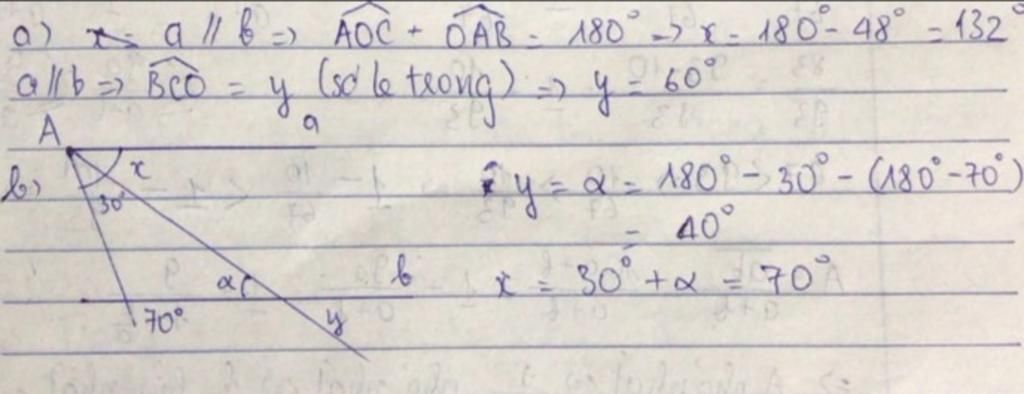 a) a // b => AOC + OAB = 180° → x = 180° - 48° = 132°
a // b => BCO = y (so le trong) => y = 60°
A a
x
b) 30° y = α = 180° - 30° - (180° - 70°)
= 40°
α b x = 30° + α = 70°
70° y